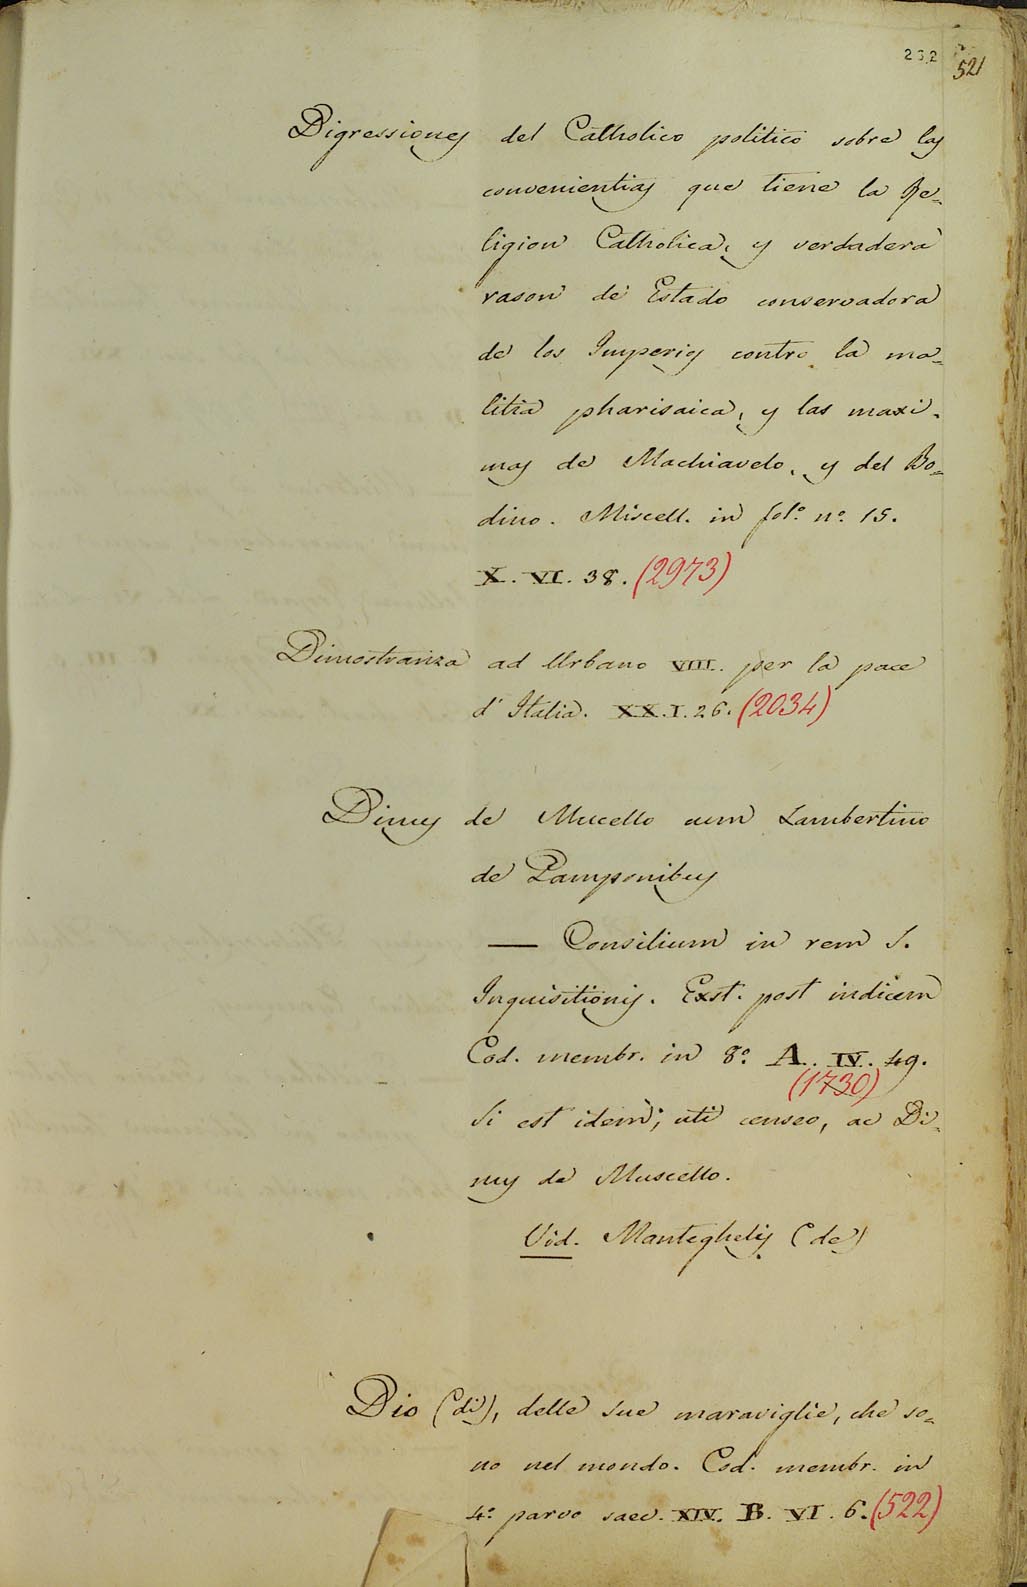 232 521
Digressiones del Catholico politico sobre las
convenientias que tiene la Re-
ligion Catholica, y verdadera
rason de Estado conservadora
de los Imperios contro la ma-
litia pharisaica, y las maxi-
mas de Machiavelo, y del Bo-
dino. Miscell. in fol.º nº. 15.
X. VI. 38. (2973)
Dimostranza ad Urbano VIII. per la pace
d'Italia. XX.I.26. (2034)
Dinus de Mucello cum Lambertino
de Ramponibus
— Consilium in rem S.
Inquisitionis. Exst. post indicem
Cod. membr. in 8º. A. IV. 49.
(1730)
Si est idem, uti censeo, ac Di-
nus de Muscello.
Vid. Manteghelis (de)
Dio (di), delle sue maraviglie, che so-
no nel mondo. Cod. membr. in
4º. parvo saec. XIV. B. VI. 6. (522)